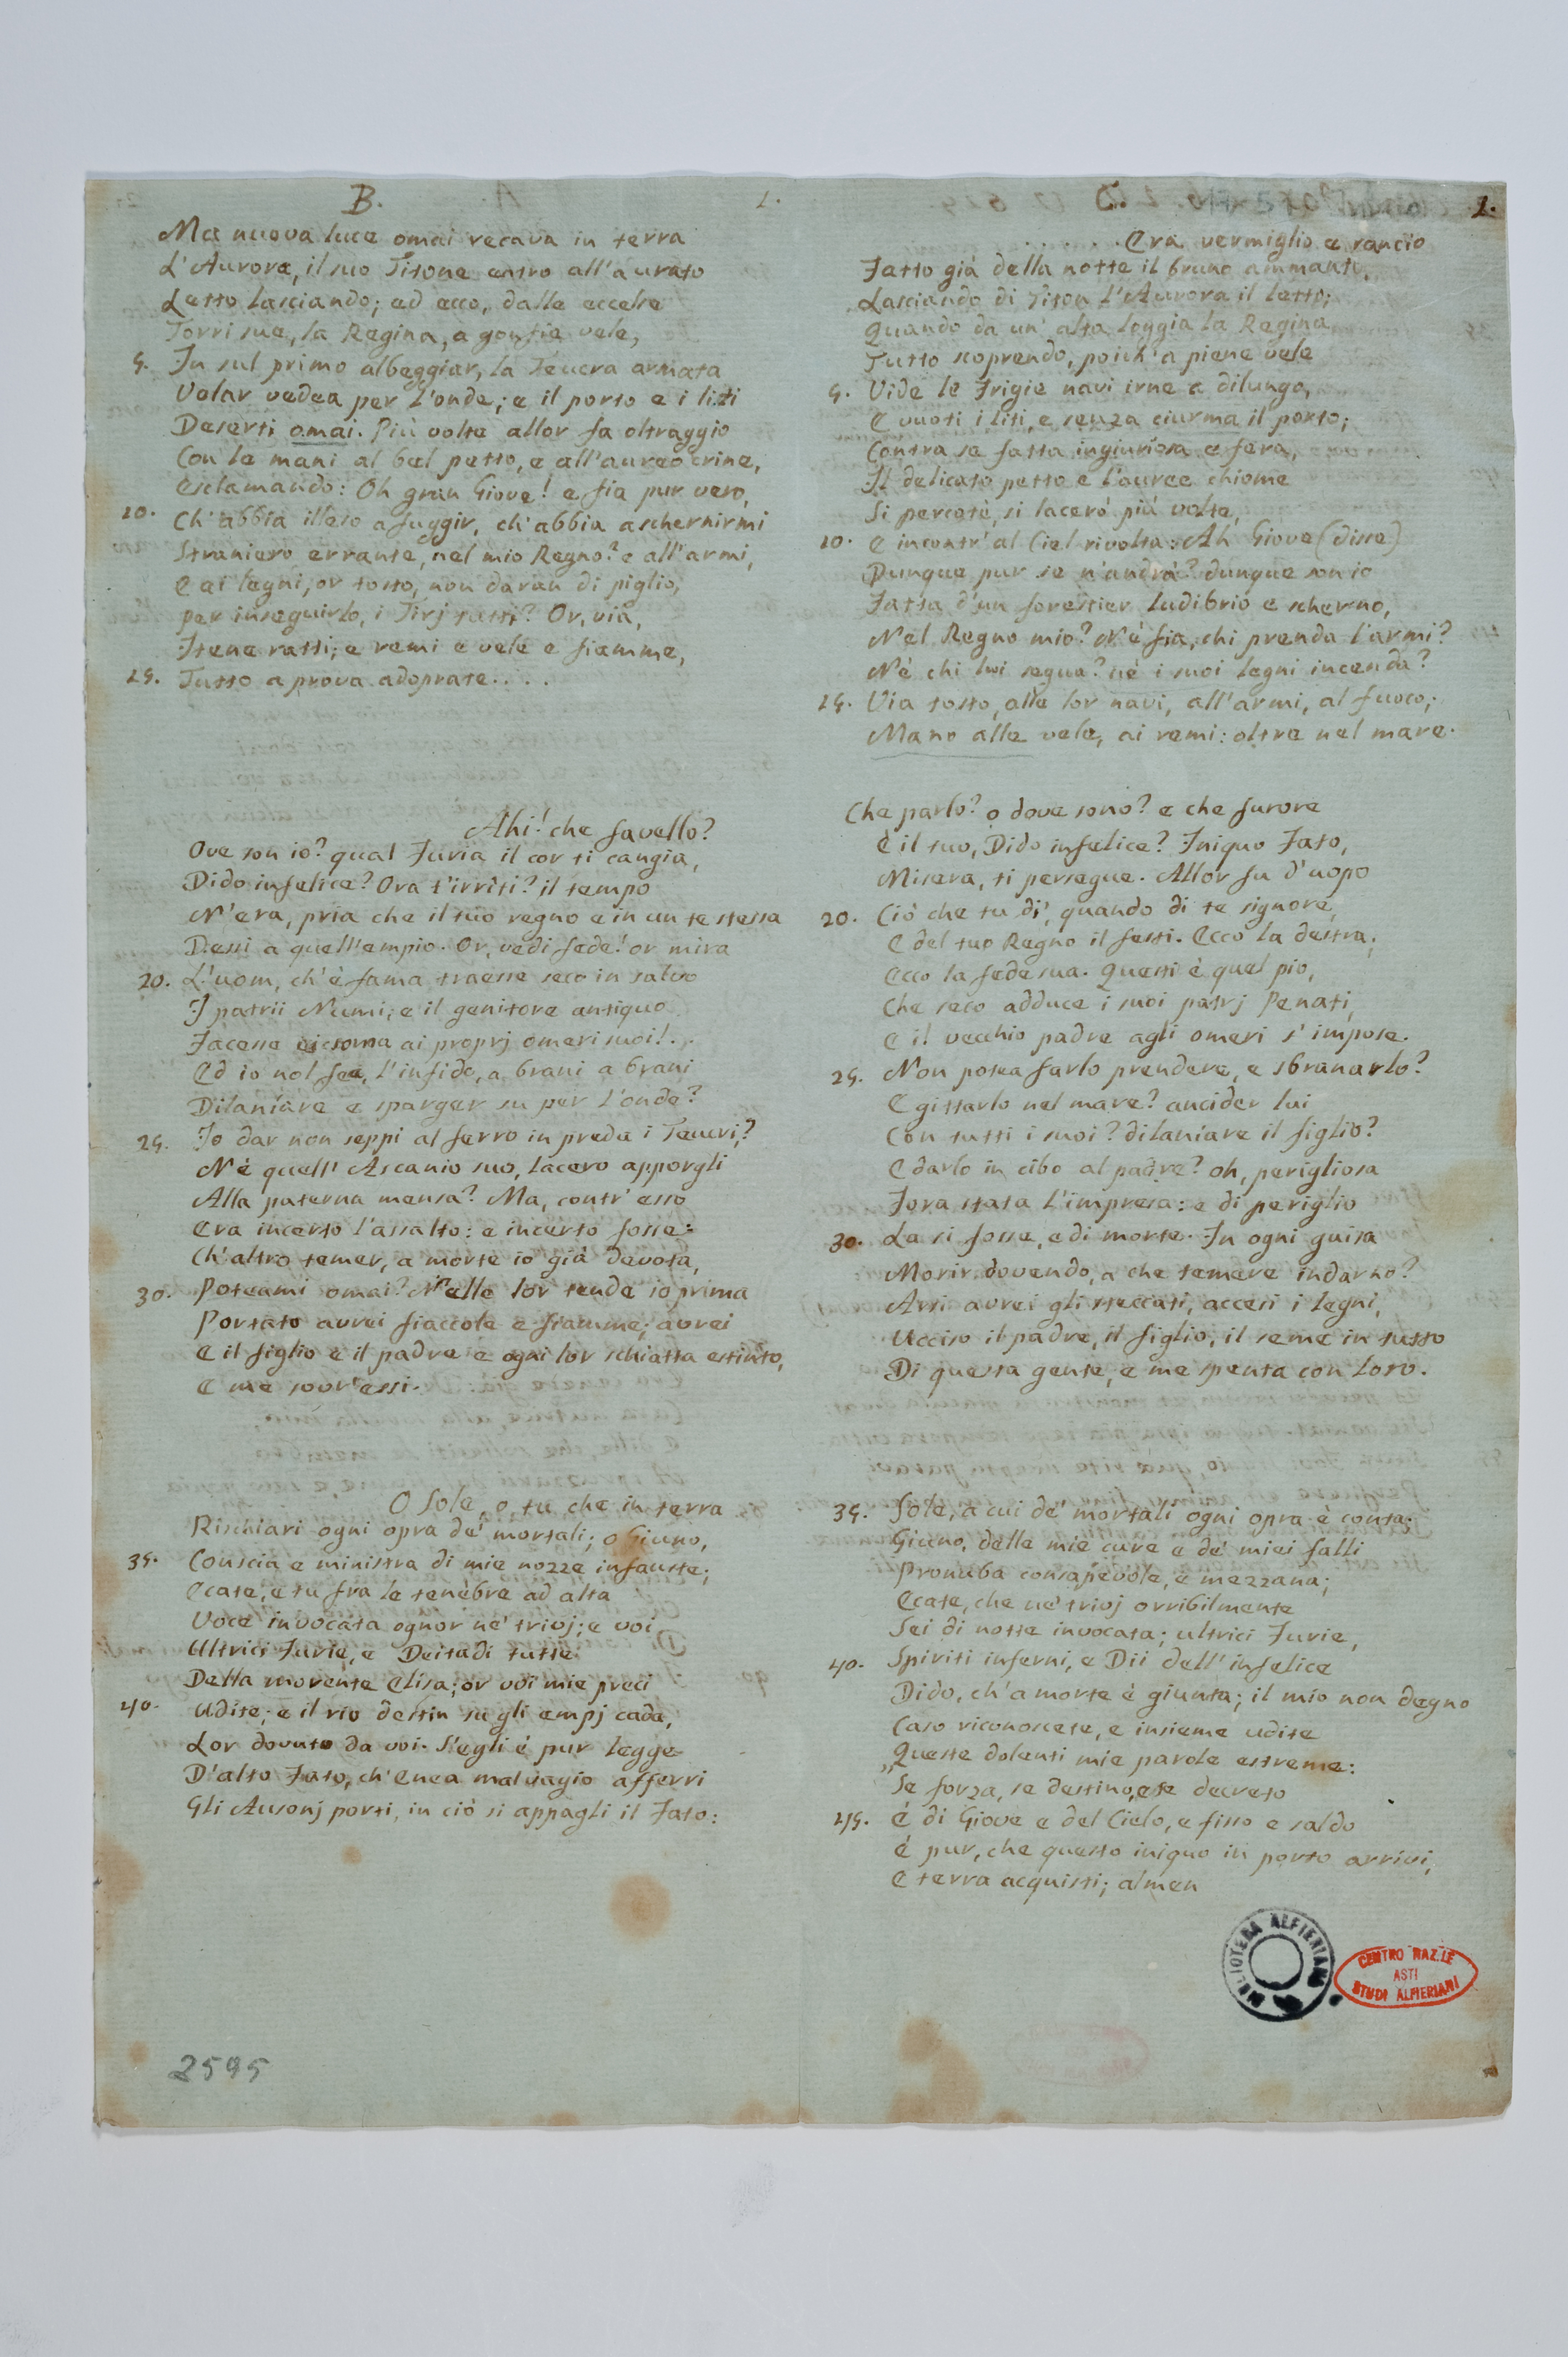 B.
Ma nuova luce omai recava in terra
L'Aurora, il suo Titone entro all'aurato
Letto lasciando; ed ecco, dalle eccelse
Torri sue, la Regina, a gonfie vele,
5. In sul primo albeggiar, la Teucra armata
Volar vedea per l'onde; e il porto e i liti
Deserti omai. Più volte allor fa oltraggio
Con le mani al bel petto, e all'aureo crine,
Esclamando: Oh gran Giove! e fia pur vero,
10. Ch'abbia illeso a fuggir, ch'abbia a schernirmi
Straniero errante, nel mio Regno? e all'armi,
E ai legni, or tosto, non daran di piglio,
Per inseguirlo, i Tirj tutti? Or, via,
Itene ratti; e remi e vele e fiamme,
15. Tutto a prova adoprate....
Ahi! che favello?
Ove son io? qual Furia il cor ti cangia,
Dido infelice? Ora t'irrìti? il tempo
N'era, pria che il tuo regno e in un te stessa
Dessi a quell'empio. Or, vedi fede! or mira
20. L'uom, ch'è fama traesse seco in salvo
I patrii Numi; e il genitore antiquo
Facesse ai proprj omeri suoi!..
Ed io nol fea, l'infido, a brani a brani
Dilaniare e sparger su per l'onde?
25. Io dar non seppi al ferro in preda i Teucri?
Nè quell'Ascanio suo, lacero apporgli
Alla paterna mensa? Ma, contr'esso
Era incerto l'assalto: e incerto fosse:
Ch'altro temer, a morte io già devota,
30. Poteami omai? Nelle lor tende io prima
Portato avrei fiaccole e fiamme; avrei
E il figlio e il padre e ogni lor schiatta estinto,
E me sovr'essi.
O Sole, o tu che in terra
Rischiari ogni opra de' mortali; o Giuno,
35. Conscia e ministra di mie nozze infauste;
Ecate, e tu fra le tenèbre ad alta
Voce invocata ognor ne' trivj; e voi
Ultrici Furie, e Deitadi tutte
Della morente Elisa; or voi mie preci
40. Udite; e il rio destin su gli empj cada,
Lor dovuto da voi. S'egli è pur legge
D'alto Fato, ch'Enea malvagio afferri
Gli Ausonj porti, in ciò si appagli il Fato:
2595
1.
C.
1.
. . . . . . Era vermiglio e rancio
Fatto già della notte il bruno ammanto,
Lasciando di Titon l'Aurora il letto;
Quando da un'alta loggia la Regina
Tutto scoprendo, poich'a piene vele
5. Vide le Frigie navi irne a dilungo,
E vuoti i liti, e senza ciurma il porto;
Contra se fatta ingiuriosa e fera,
Il delicato petto e l'auree chiome
Si percotè, si lacerò più volte,
10. E incontr'al Ciel rivolta: Ah Giove (disse)
Dunque pur se n'andrà? dunque son io
Fatta d'un forestier ludibrio e scherno,
Nel Regno mio? Nè fia, chi prenda l'armi?
Nè chi lui segua? nè i suoi legni incenda?
15. Via tosto, alle lor navi, all'armi, al fuoco;
Mano alle vele, ai remi: oltre nel mare.
Che parlo? o dove sono? e che furore
È il tuo, Dido infelice? Iniquo Fato,
Misera, ti persegue. Allor fu d'uopo
20. Ciò che tu di', quando di te signore,
E del tuo Regno il festi. Ecco la destra,
Ecco la fede sua. Questi è quel pio,
Che seco adduce i suoi patrj Penati,
E il vecchio padre agli omeri s'impose.
25. Non potea farlo prendere, e sbranarlo?
E gittarlo nel mare? ancider lui
Con tutti i suoi? dilaniare il figlio?
E darlo in cibo al padre? oh, perigliosa
Fora stata l'impresa: e di periglio
30. La si fosse, e di morte. In ogni guisa
Morir dovendo, a che temere indarno?
Arsi avrei gli steccati, accesi i legni,
Ucciso il padre, il figlio, il seme in tutto
Di questa gente, e me spenta con loro.
35. Sole, a cui de' mortali ogni opra è conta:
Giuno, delle mie cure e de' miei falli
Pronuba consapevole, e mezzana;
Ecate, che ne' trivj orribilmente
Sei di notte invocata; ultrici Furie,
40. Spiriti inferni, e Dii dell'infelice
Dido, ch'a morte è giunta; il mio non degno
Caso riconoscete, e insieme udite
„Queste dolenti mie parole estreme:
Se forza, se destino, se decreto
45. È di Giove e del Cielo, e fisso e saldo
È pur, che questo iniquo in porto arrivi,
E terra acquisti; almen
BIBLIOTECA ALFIERIANA
CENTRO NAZ.LE
ASTI
STUDI ALFIERIANI